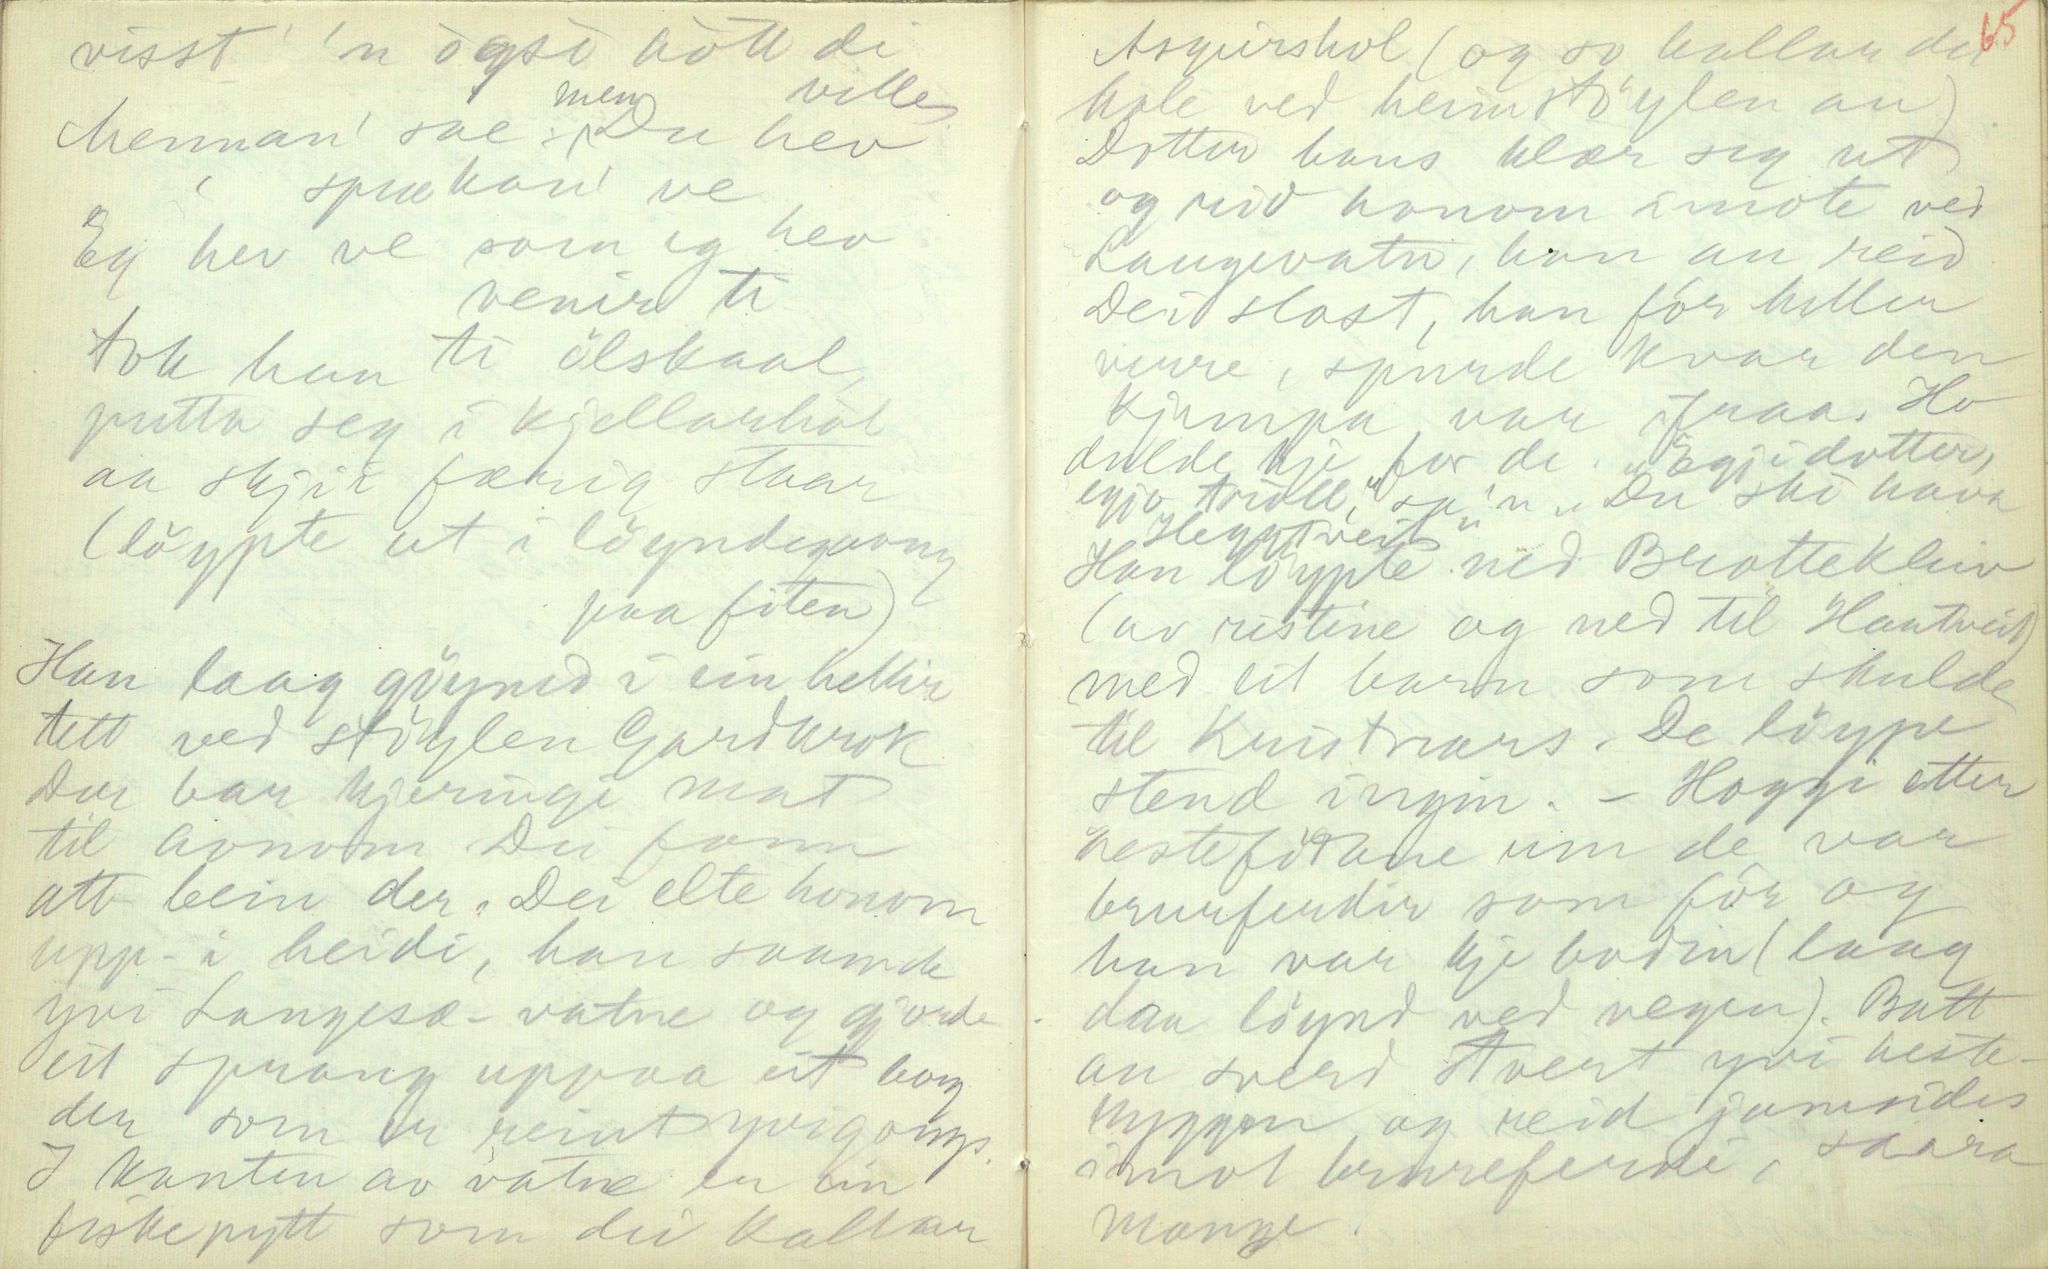 visst' 'n ògsò hòtt di
hennan' sae: men Du hev villes
i spækan' ve
Eg hev ve som eg hev
venir ti
tok han ti ölskaal,
putta seg i kjellarhòl
aa skjir færig staar
(löypte ut i löyndegong
paa fiten)
Han laag göymd i ein hellir
tett ved stöylen Gardkrok
Der bar kjeringi mat
til honom Dei fann
att bein der. Dei elte honom
upp i heidi, han saamde
yvi Langesæ-vatne og gjorde
eit sprang uppaa eit berg
der som er reint yvigongs.
I kanten av vatne er ein
fiskepytt som dei kallar
65
Asgeirshol (og so kallar dei
hole ved heimstöylen au)
Dotter hans klær seg ut
og reid honom imote ved
Langevatn, han au reid
Dei slost, han fór hiller
verre, spurde kvar den
kjempa var ifraa. Ho
dulde kje for de. "Egjidotter,
egjo troll," sa 'n. "Du ski hava
Heggtveit"
Han löypte ned Brattekleiv
(av ristine og ned til Hautveit)
med eit barn som skulde
til Kristnars. De löype
stend ingin. – Hoggi etter
hestefötane um de var
brurferdir som fór og
han var kje bodin (laag
daa löynd ved vegen). Batt
an sverd tvert yvi heste-
ryggen og reid jamsides
imot brureferdi, saara
mange.